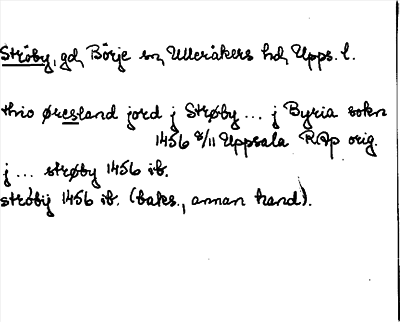 Ströby, gd, Börje sn, Ulleråkers hd, Upps. l.
thio øresland jord j Strøby ... j Byria sokn
1456 8/11 Uppsala RAp orig.
j ... strøby 1456 ib.
strøbÿ 1456 ib. (baks., annan hand).